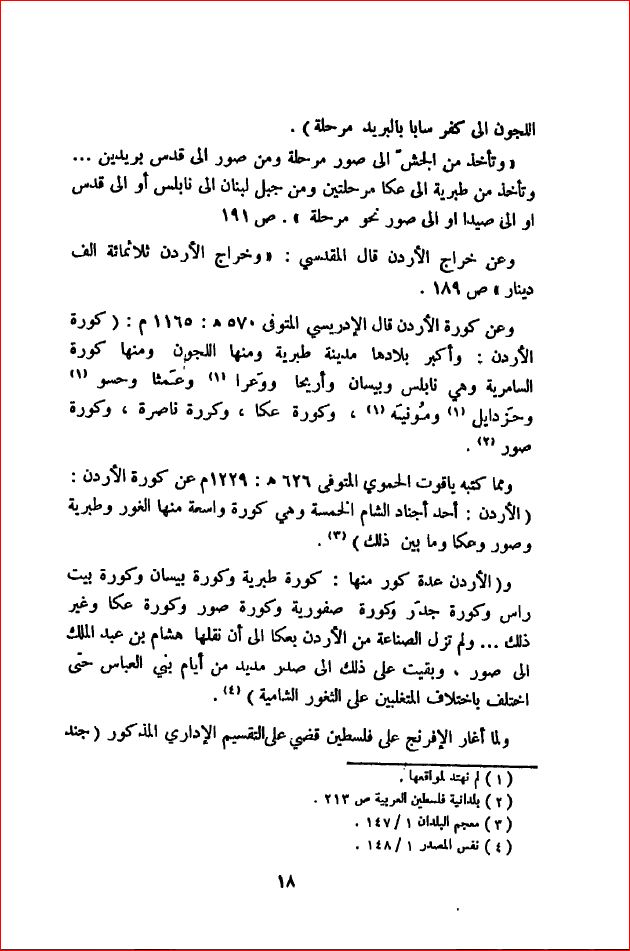 اللجون الى كفر سابا بالبريد مرحلة ) .
« وتأخذ من الجشّ الى صور مرحلة ومن صور الى قدس بريدين ...
وتأخذ من طبرية الى عكا مرحلتين ومن جبل لبنان الى نابلس أو الى قدس
او الى صيدا او الى صور نحو مرحلة » . ص ١٩١
وعن خراج الأردن قال المقدسي : « وخراج الأردن ثلاثمائة الف
دينار » ص ١٨٩ .
وعن كورة الأردن قال الإدريسي المتوفى ٥٧٠ ه : ١١٦٥ م : ( كورة
الأردن : وأكبر بلادها مدينة طبرية ومنها اللجون ومنها كورة
السامرية وهي نابلس وبيسان وأريحا ووَعرا (١) وعَمثا وحسو (١)
وحَزدايل (١) ومُونيتَه (١) ، وكورة عكا ، وكررة ناصرة ، وكورة
صور (٢) .
ومما كتبه ياقوت الحموي المتوفى ٦٢٦ ه : ١٢٢٩م عن كورة الأردن :
( الأردن : أحد أجناد الشام الخمسة وهي كورة واسعة منها الغور وطبرية
وصور وعكا وما بين ذلك ) (٣) .
و( الأردن عدة كور منها : كورة طبرية وكورة بيسان وكورة بيت
راس وكورة جدَر وكورة صفورية وكورة صور وكورة عكا وغير
ذلك ... ولم تزل الصناعة من الأردن بعكا الى أن نقلها هشام بن عبد الملك
الى صور ، وبقيت على ذلك الى صدر مديد من أيام بني العباس حتّى
اختلف باختلاف المتغلبين على الثغور الشامية ) (٤) .
ولما أغار الإفرنج على فلسطين قضي على التقسيم الإداري المذكور ( جند
( ١ ) لم نهتد لمواقعها .
( ٢ ) بلدانية فلسطين العربية ص ٢١٣ .
( ٣ ) معجم البلدان ١ / ١٤٧ .
( ٤ ) نفس المصدر ١ / ١٤٨ .
١٨